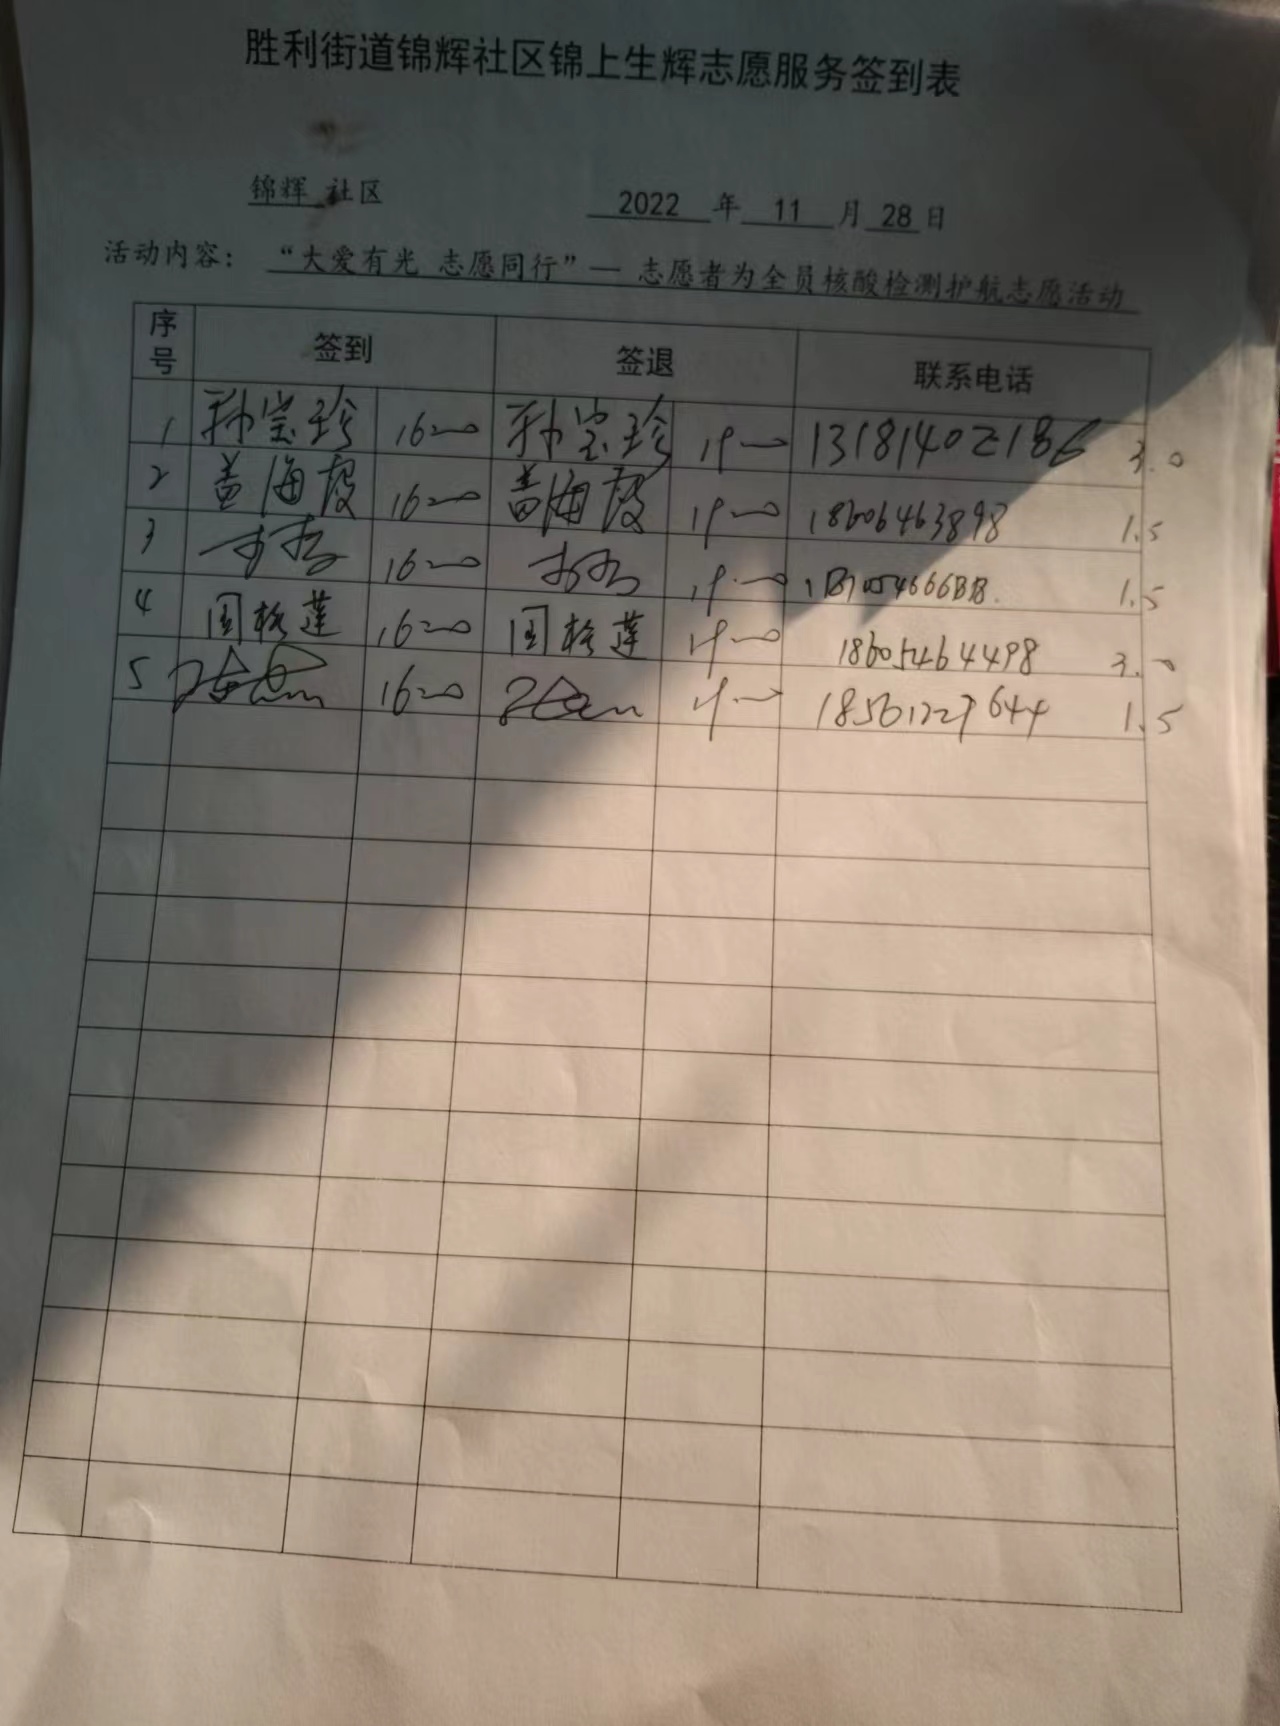 胜利街道锦辉社区锦上生辉志愿服务签到表
锦辉 社区 2022 年 11 月 28 日
活动内容： “大爱有光 志愿同行”— 志愿者为全员核酸检测护航志愿活动
序号 签到 签退 联系电话
1 孙宝珍 16:00 孙宝珍 19:00 13181402186 3.0
2 盖海霞 16:00 盖海霞 19:00 18606463898 1.5
3 16:00 19:00 1.5
4 周格莲 16:00 周格莲 19:00 18605464498 3.0
5 16:00 19:00 18561227644 1.5